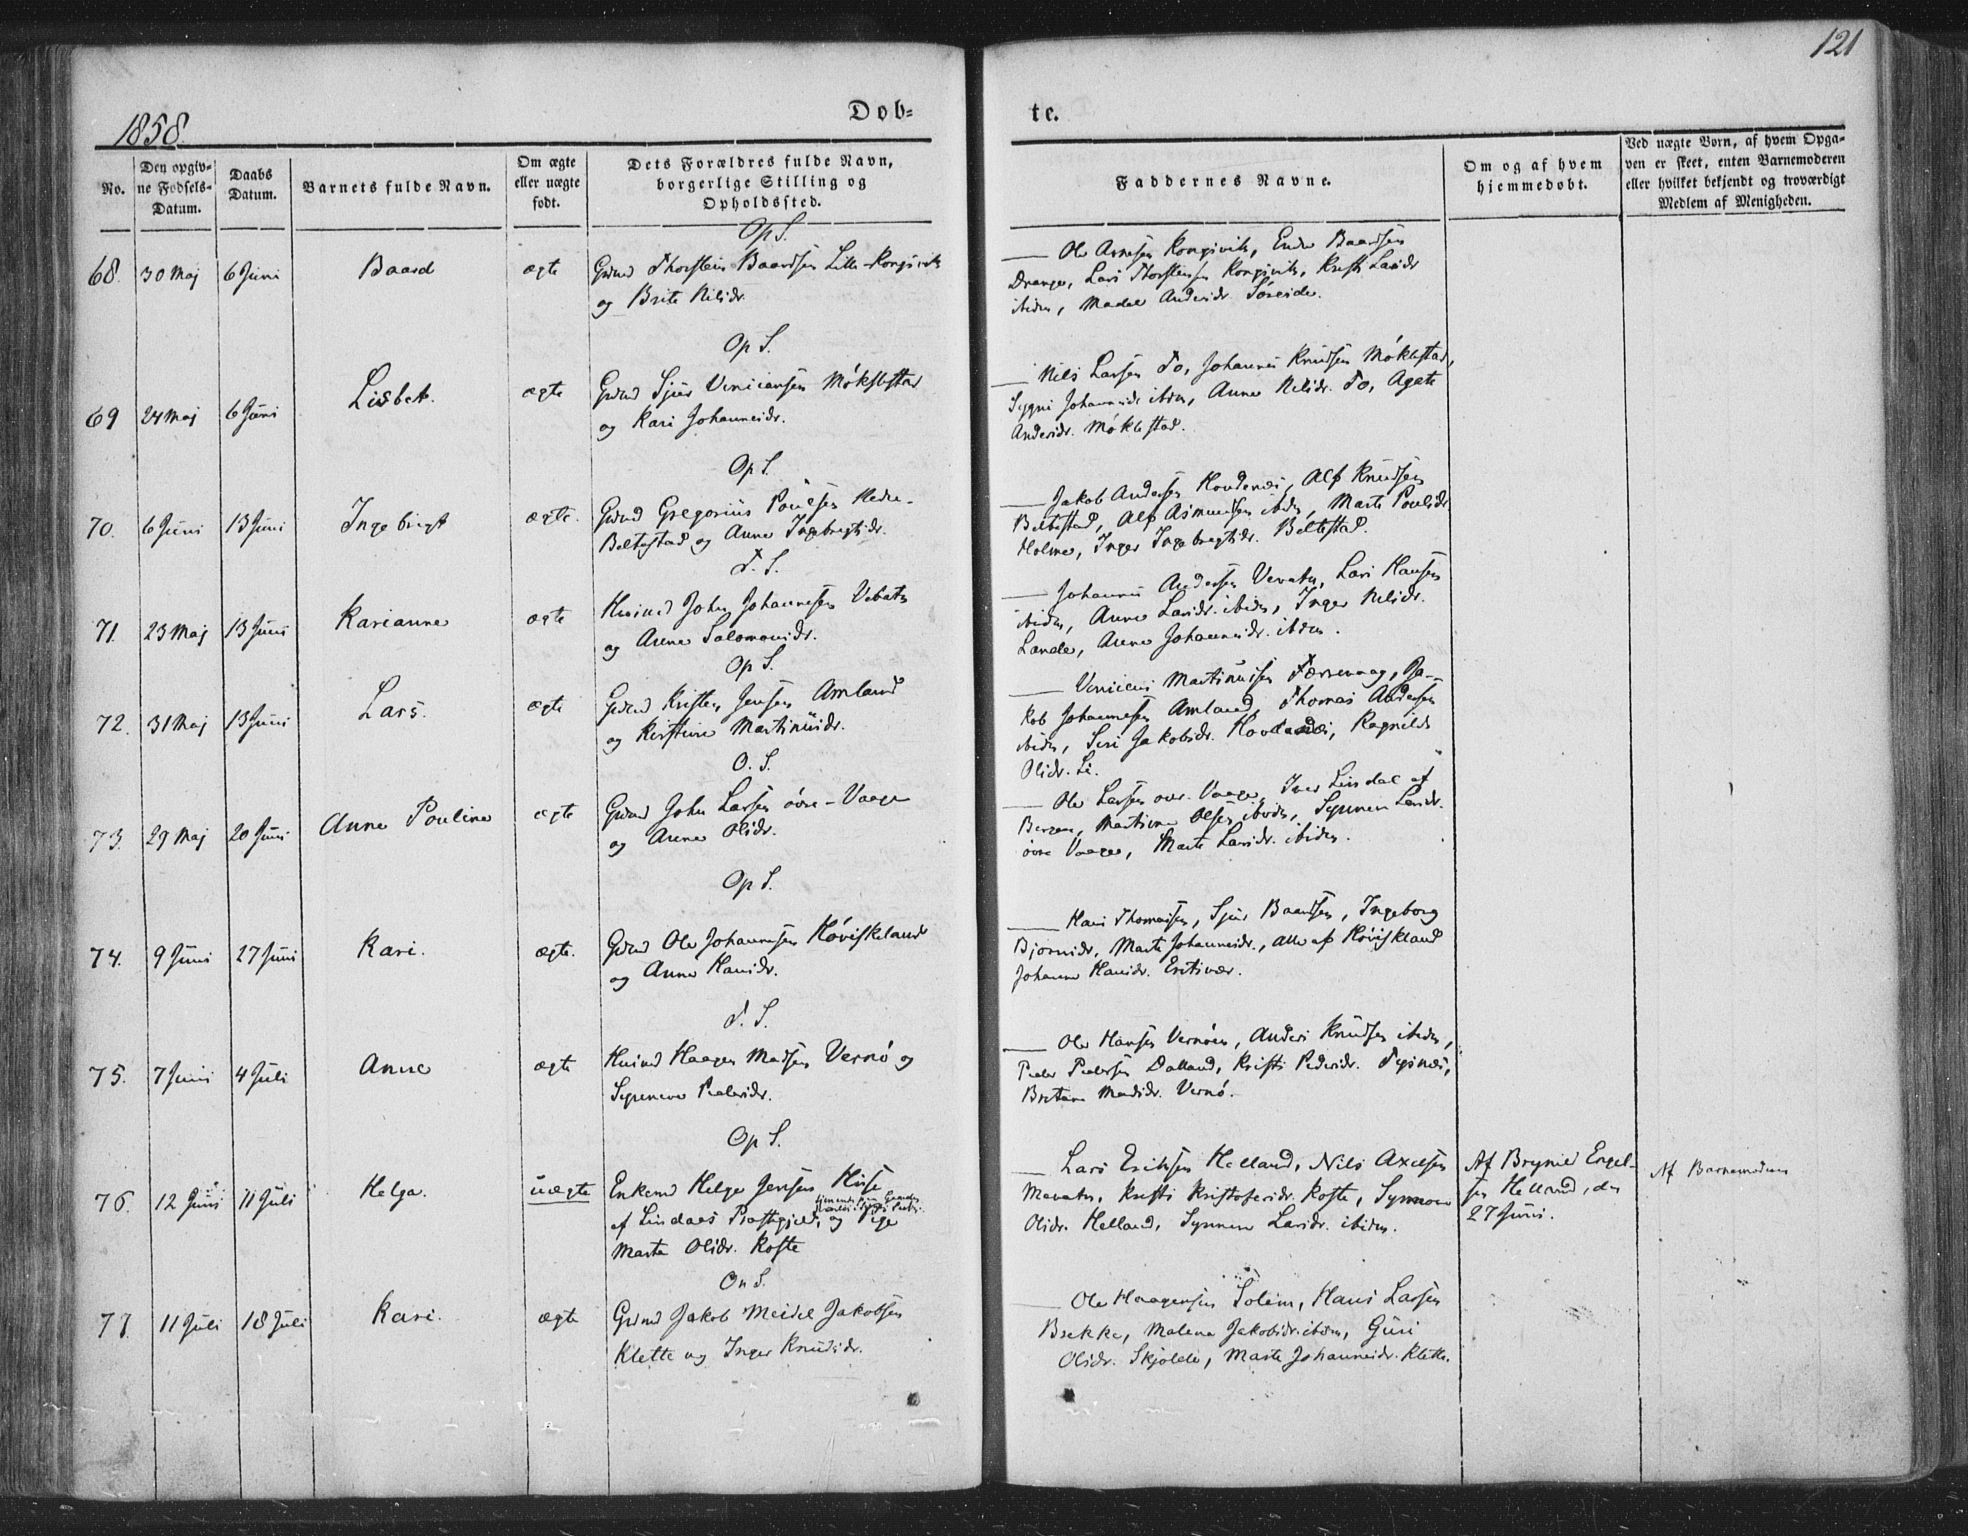 121
1858.
Døb=
te.
No.
Den opgivne Fødsels-Datum.
Daabs Datum.
Barnets fulde Navn.
Om ægte eller uægte født.
Dets Forældres fulde Navn, borgerlige Stilling og Opholdssted.
Faddernes Navne.
Om og af hvem hjemmedøbt.
Ved uægte Børn, af hvem Opgaven er skeet, enten Barnemoderen eller hvilket bekjendt og troværdigt Medlem af Menigheden.
Op S.
68. 30 Maj 6 Juni Baard ægte Grdmd Thorstein Baardsen Litle-Kongsvik
og Brite Nilsdr.
— Ole Arnesen Kongsvik, Endre Baardsen
Drange, Lars Thorstensen Kongsvik, Kristi Larsdr
ibidm, Madel Andersdr. Søreide.
Op S.
69 24 Maj 6 Juni Lisbet. ægte Grdmd Sjur Vincensen Møklestad
og Kari Johannesdr.
— Nils Larsen To, Johannes Knudsen Møklestad,
Sygni Johannesdr ibidm, Anne Nilsdr. To, Agate
Andersdr. Møklestad.
Op S.
70. 6 Juni 13 Juni Ingebrigt ægte. Grdmd Gregorius Poulsen Nedre-
Beltestad og Anne Ingebrigtsdr.
— Jakob Andersen Hovdenæs, Alf Knudsen
Beltestad, Alf Asmundsen ibidm, Marte Poulsdr
Holme, Inger Ingebrigtsdr. Beltestad.
T. S.
71. 23 Maj 13 Juni Karianne ægte Husmd John Johannesen Vevatn
og Anne Salomonsdr.
— Johannes Andersen Vevatn, Lars Hansen
ibidm, Anne Larsdr. ibidm, Inger Nilsdr.
Lande, Anne Johannesdr. ibidm.
Op S.
72. 31 Maj 13 Juni Lars. ægte Grdmd Kristen Jensen Amland
og Kirstine Martinusdr.
— Vincens Martinussen Færrevaag, Ja-
kob Johannesen Amland, Thomas Andersen
ibidm, Siri Jakobsdr. Hovdenæs, Ragnilde
Olsdr. Li.
O. S.
73. 29 Maj 20 Juni Anne Pouline ægte Grdmd John Larsen øvre-Vaage
og Anne Olsdr.
— Ole Larsen øvr. Vaage, Iver Lindal af
Bergen, Martine Olsen ibidm, Synneve Larsdr.
øvre Vaage, Marte Larsdr. ibidm.
Op S.
74. 9 Juni 27 Juni Kari. ægte. Grdmd Ole Johannesen Høviskeland
og Anne Hansdr.
— Hans Thomassen, Sjur Baardsen, Ingeborg
Bjørnsdr, Marte Johannesdr., alle af Høviskland
Johanne Hansdr. Ersvær.
T. S.
75. 7 Juni 4 Juli Anne ægte Husmd Haagen Madsen Vernø og
Synneve Pedersdr.
— Ole Hansen Vernøen, Anders Knudsen ibidm,
Peder Pedersen Dalland, Kristi Pedersdr. Tysnæs,
Britane Madsdr. Vernø.
Op S.
76. 12 Juni 11 Juli Helga. uægte Enkemd Helge Jensen Huse
af Lindaas Præstegjeld, og Pige
Marta Olsdr. Kofte
— Lars Eriksen Helland, Nils Axelsen
Mevatn, Kristi Kristofersdr. Kofte, Synneve
Olsdr. Helland, Synneve Larsdr. ibidm.
Af Brynild Engel-
sen Helland, den
27 Juni.
Af Barnemoderen
On S.
77. 11 Juli 18 Juli Kari. ægte Grdmd Jakob Meidel Jakobsen
Klette og Inger Knudsdr.
— Ole Haagensen Solem, Hans Larsen
Brekke, Malena Jakobsdr. ibidm, Guri
Olsdr. Skjolde, Marte Johannesdr. Klette.